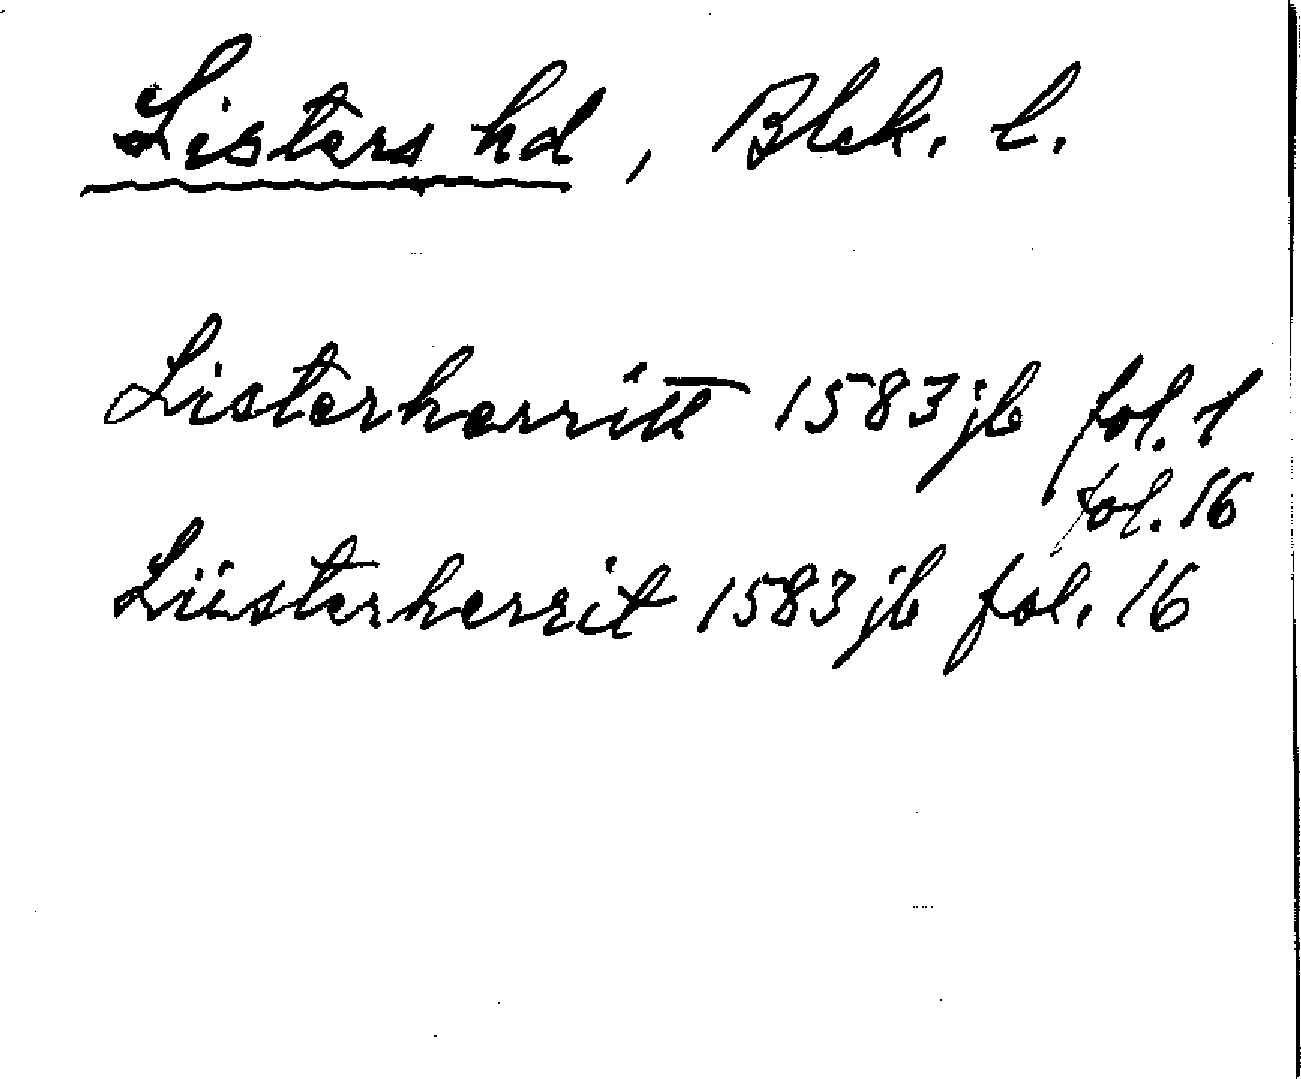 Listers hd, Blek. l.
Listerherritt 1583 jb fol. 1
fol. 16
Liisterherrit 1583 jb fol. 16